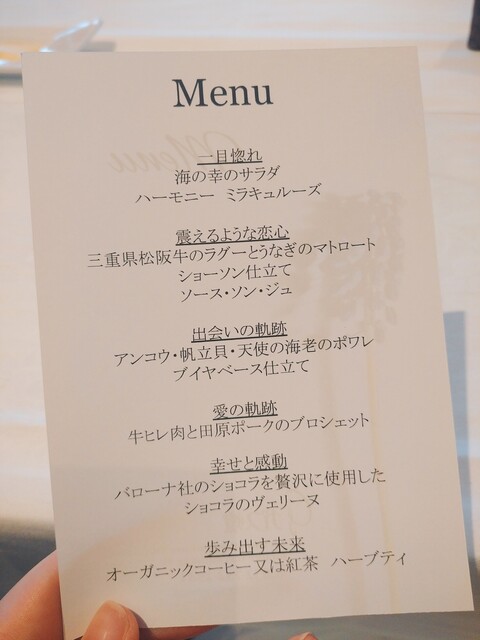 Menu
一目惚れ
海の幸のサラダ
ハーモニー ミラキュルーズ
震えるような恋心
三重県松阪牛のラグーとうなぎのマトロート
ショーソン仕立て
ソース・ソン・ジュ
出会いの軌跡
アンコウ・帆立貝・天使の海老のポワレ
ブイヤベース仕立て
愛の軌跡
牛ヒレ肉と田原ポークのブロシェット
幸せと感動
バローナ社のショコラを贅沢に使用した
ショコラのヴェリーヌ
歩み出す未来
オーガニックコーヒー又は紅茶 ハーブティ